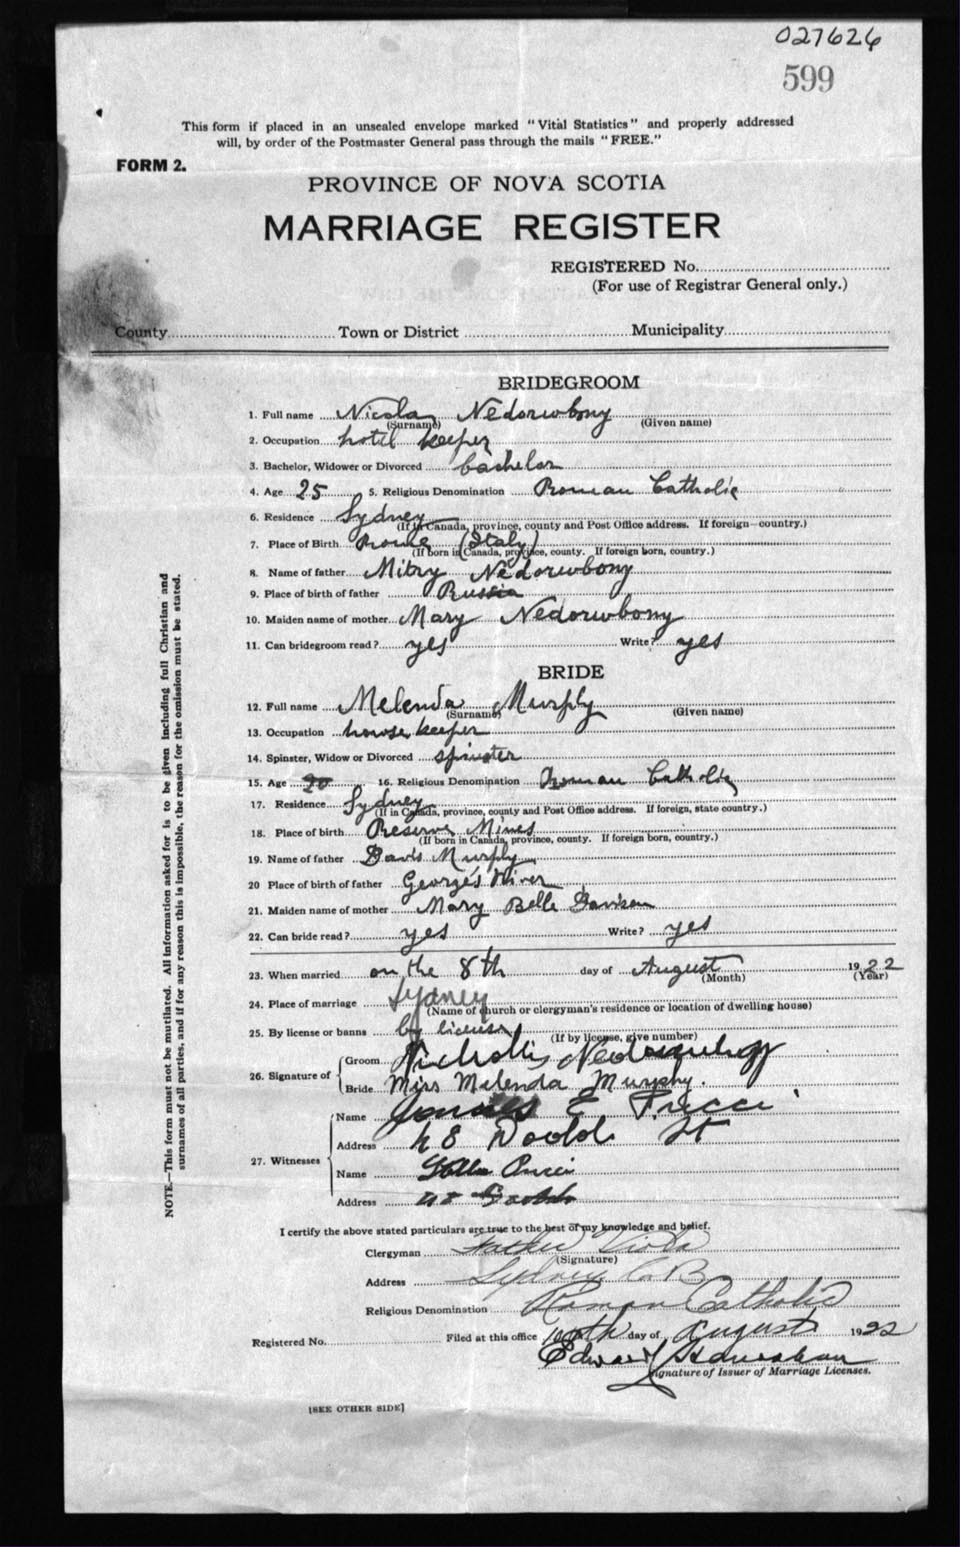 027626
599
This form if placed in an unsealed envelope marked "Vital Statistics" and properly addressed
will, by order of the Postmaster General pass through the mails "FREE."
FORM 2.
PROVINCE OF NOVA SCOTIA
MARRIAGE REGISTER
REGISTERED No.
(For use of Registrar General only.)
County Town or District Municipality
BRIDEGROOM
1. Full name Nicola Nedorwbony
(Surname) (Given name)
2. Occupation hotel keeper
3. Bachelor, Widower or Divorced bachelor
4. Age 25 5. Religious Denomination Roman Catholic
6. Residence Sydney
(If in Canada, province, county and Post Office address. If foreign—country.)
7. Place of Birth Rome (Italy)
(If born in Canada, province, county. If foreign born, country.)
8. Name of father Mitry Nedorwbony
9. Place of birth of father Russia
10. Maiden name of mother Mary Nedorwbony
11. Can bridegroom read? yes Write? yes
BRIDE
12. Full name Melenda Murphy
(Surname) (Given name)
13. Occupation house keeper
14. Spinster, Widow or Divorced spinster
15. Age 20 16. Religious Denomination Roman Catholic
17. Residence Sydney
(If in Canada, province, county and Post Office address. If foreign, state country.)
18. Place of birth Reserve Mines
(If born in Canada, province, county. If foreign born, country.)
19. Name of father Davis Murphy
20 Place of birth of father George's River
21. Maiden name of mother Mary Belle Davison
22. Can bride read? yes Write? yes
23. When married on the 8th day of August 1922
(Month) (Year)
24. Place of marriage Sydney
(Name of church or clergyman's residence or location of dwelling house)
25. By license or banns by license
(If by license, give number)
26. Signature of
Groom Nicholis
Bride Miss Melenda Murphy.
27. Witnesses
Name James E Pucci
Address 48 Dodd St
Name Pucci
Address 48
I certify the above stated particulars are true to the best of my knowledge and belief.
Clergyman Father Viola
(Signature)
Address Sydney C.B.
Religious Denomination Roman Catholic
Registered No. Filed at this office day of August 1922
Edward
Signature of Issuer of Marriage Licenses.
[SEE OTHER SIDE]
NOTE.—This form must not be mutilated. All information asked for is to be given including full Christian and
surnames of all parties, and if for any reason this is impossible, the reason for the omission must be stated.